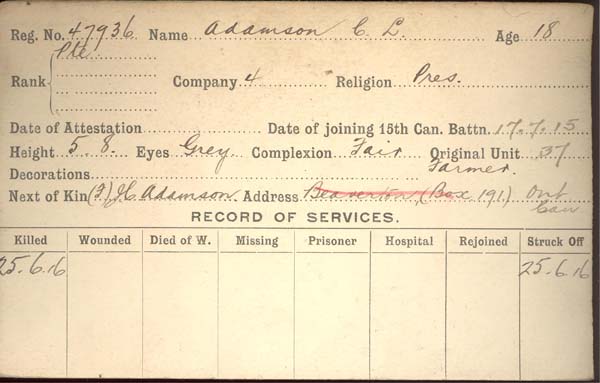 Reg. No. 47936 Name Adamson C. L. Age 18
Rank Pte Company 4 Religion Pres.
Date of Attestation Date of joining 15th Can. Battn. 17.7.15
Height 5.8. Eyes Grey. Complexion Fair Original Unit 37
Decorations Farmer.
Next of Kin (F) J.C. Adamson. Address Beaverton (Box 191) Ont Can
RECORD OF SERVICES.
Killed Wounded Died of W. Missing Prisoner Hospital Rejoined Struck Off
25.6.16 25.6.16